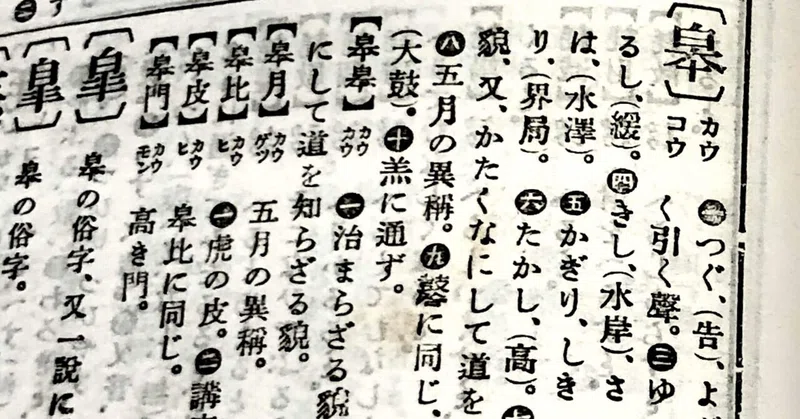 【皋】カウ コウ ㊀つぐ、(告)、よ
く引く聲。㊂ゆ
るし、(緩)。㊃きし、(水岸)、さ
は、(水澤)。㊄かぎり、しき
り、(界局)。㊅たかし、(高)。㊆
貌、又、かたくなにして道を
㊇五月の異稱。㊈鼛に同じ、
(大鼓)。㊉羔に通ず。
【皋皋】カウカウ ㊀治まらざる貌
にして道を知らざる貌。
【皋月】カウゲツ 五月の異稱。
【皋比】カウヒ ㊀虎の皮。㊁講
【皋皮】カウヒ 皋比に同じ。
【皋門】カウモン 高き門。
皋の俗字、又一說に
皋の俗字。